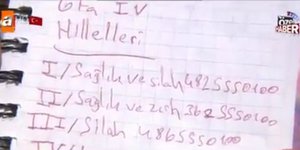 Gta IV
Hilleleri
I/Sağlık ve silah 4825550100
II/Sağlık ve zırh 3625550100
III/Silah 4865550100
a
ÖZEL
HABER